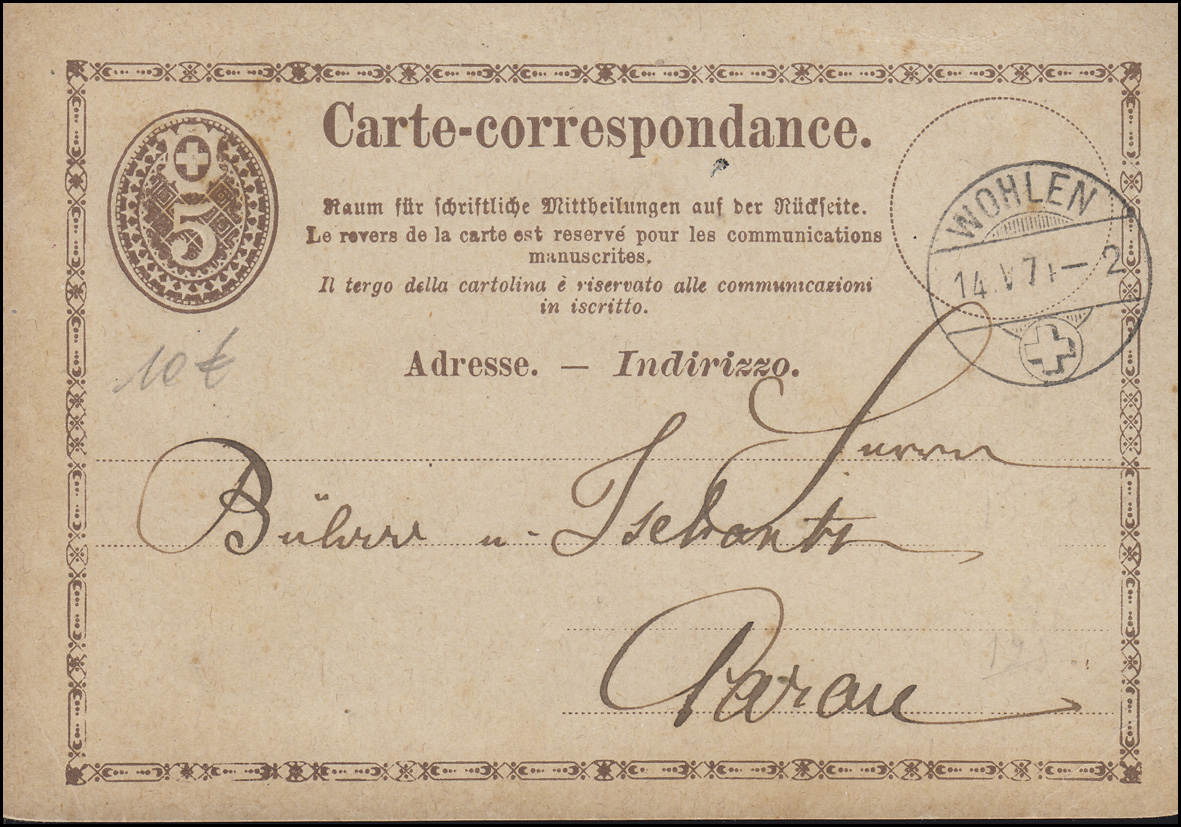 Carte-correspondance.
5
Raum für schriftliche Mittheilungen auf der Rückseite.
Le revers de la carte est reservé pour les communications
manuscrites.
Il tergo della cartolina è riservato alle communicazioni
in iscritto.
WOHLEN
14. V 7 – 2
10 €
Adresse. — Indirizzo.
Herrn
u.
Aarau